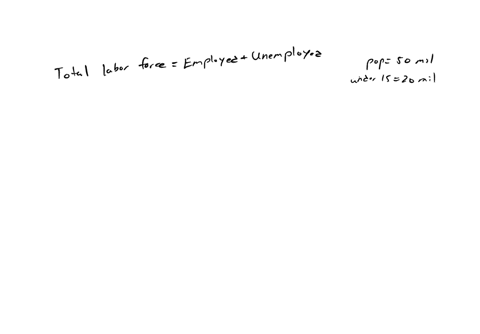 Total labor force = Employed + Unemployed
pop = 50 mil
under 15 = 20 mil